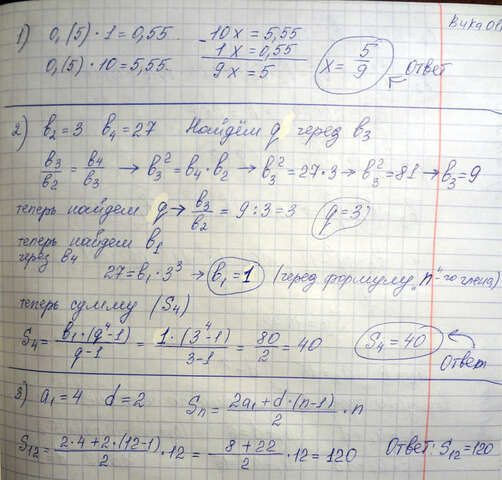 Вика Ол
1) 0,(5)·1=0,55... 10x = 5,55...
0,(5)·10=5,55... 1x = 0,55...
9x = 5
x = 5/9 Ответ
2) b₂=3 b₄=27 Найдём q через b₃
b₃/b₂ = b₄/b₃ → b₃² = b₄·b₂ → b₃² = 27·3 → b₃² = 81 → b₃ = 9
теперь найдем q → b₃/b₂ = 9:3 = 3 q=3
теперь найдем b₁
через b₄
27 = b₁·3³ → b₁ = 1 (через формулу "n"-го члена)
теперь сумму (S₄)
S₄ = b₁·(q⁴-1)/q-1 = 1·(3⁴-1)/3-1 = 80/2 = 40 S₄ = 40
Ответ
3) a₁=4 d=2 Sₙ = 2a₁+d·(n-1)/2 · n
S₁₂ = 2·4+2·(12-1)/2 ·12 = 8+22/2 ·12 = 120 Ответ: S₁₂=120